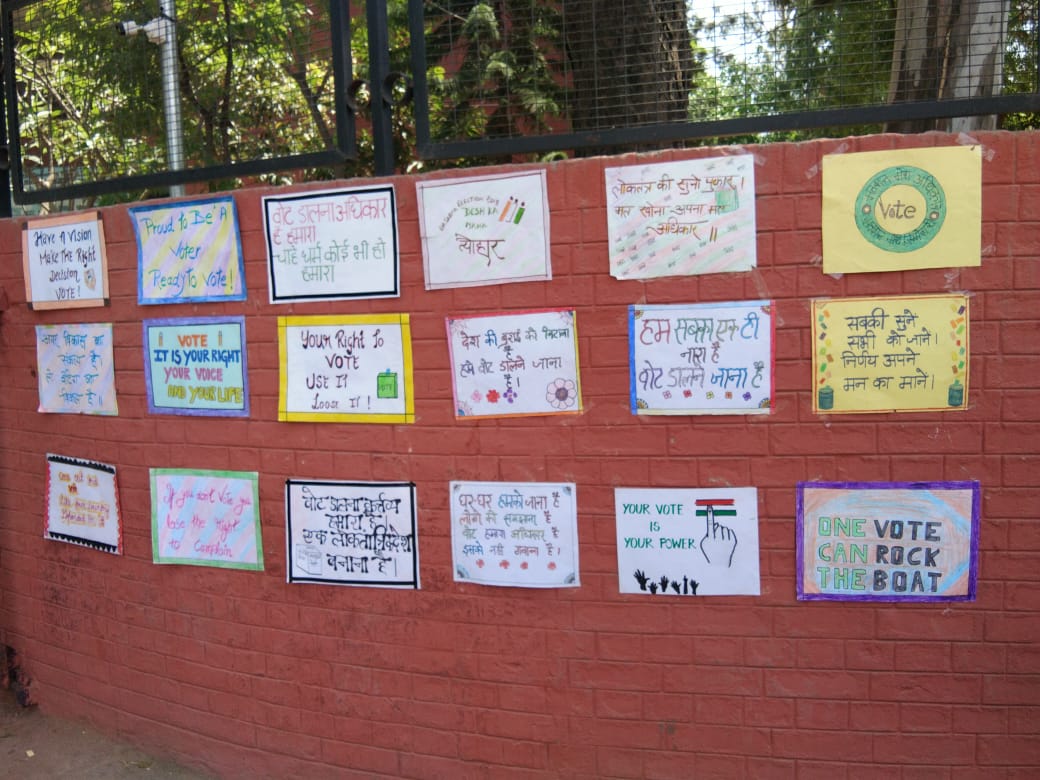 Have A Vision
Make The Right
Decision
VOTE!
Proud To Be A
Voter
Ready to Vote!
वोट डालना अधिकार
है हमारा
चाहे धर्म कोई भी हो
हमारा
ELECTION
DESH KA
त्यौहार
लोकतंत्र की सुनो पुकार।
मत खोना अपना मत
अधिकार॥
Vote
VOTE
IT IS YOUR RIGHT
YOUR VOICE
AND YOUR LIFE
Your Right To
VOTE
USE IT
Loose It!
देश की बुराई को मिटाना
है
हमे वोट डालने जाना
है।
हम सबका एक ही
नारा है
वोट डालने जाना है
सबकी सुने
सभी को जाने।
निर्णय अपने
मन का माने।
If you don't vote you
lose the right
to complain
वोट डालना कर्तव्य
हमारा है।
एक लोकतांत्रिक देश
बनाना है।
घर-घर हमको जाना है
लोगो को समझाना है
वोट हमारा अधिकार है
इसको नही गवाना है।
YOUR VOTE
IS
YOUR POWER
ONE VOTE
CAN ROCK
THE BOAT